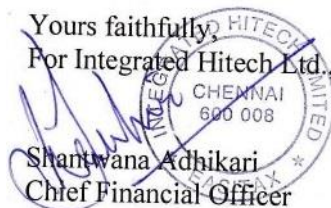 Yours faithfully,
For Integrated Hitech Ltd.,
INTEGRATED HITECH LTD.
CHENNAI
600 008
EASIFAX
Shantwana Adhikari
Chief Financial Officer